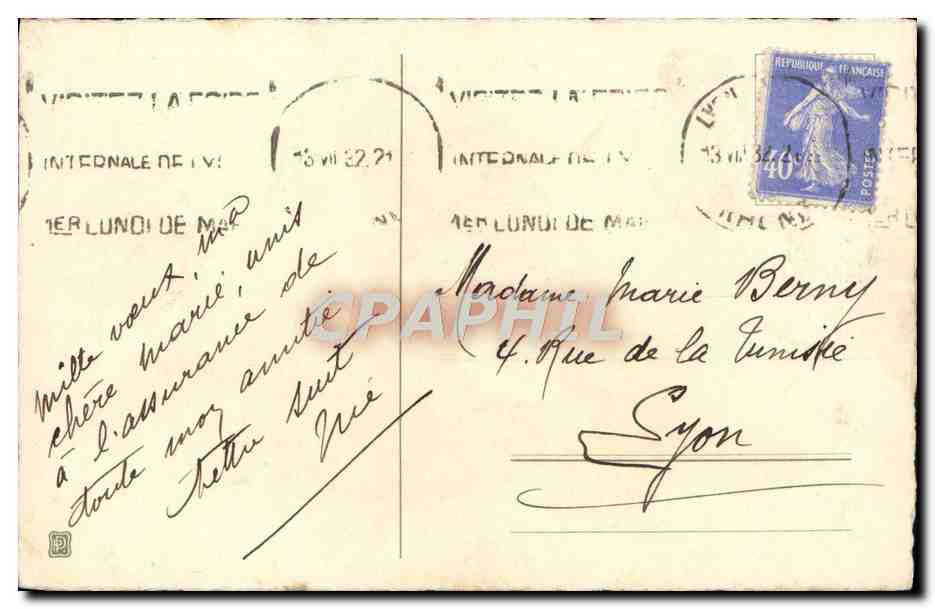 VISITEZ LA FOIRE
INTERNALE DE LY
1ER LUNDI DE MAR
13 VII 32, 21
VISITEZ LA FOIRE
INTERNALE DE LY
1ER LUNDI DE MAR
LYON
13 VII 32, 2
RHONE
REPUBLIQUE FRANÇAISE
40
POSTES
INTER
mille vœux, ma
chère marie, unis
à l'assurance de
toute mon amitié
lettre suit
Madame Marie Berny
4. Rue de la Tunisie
Lyon
CPAPHIL